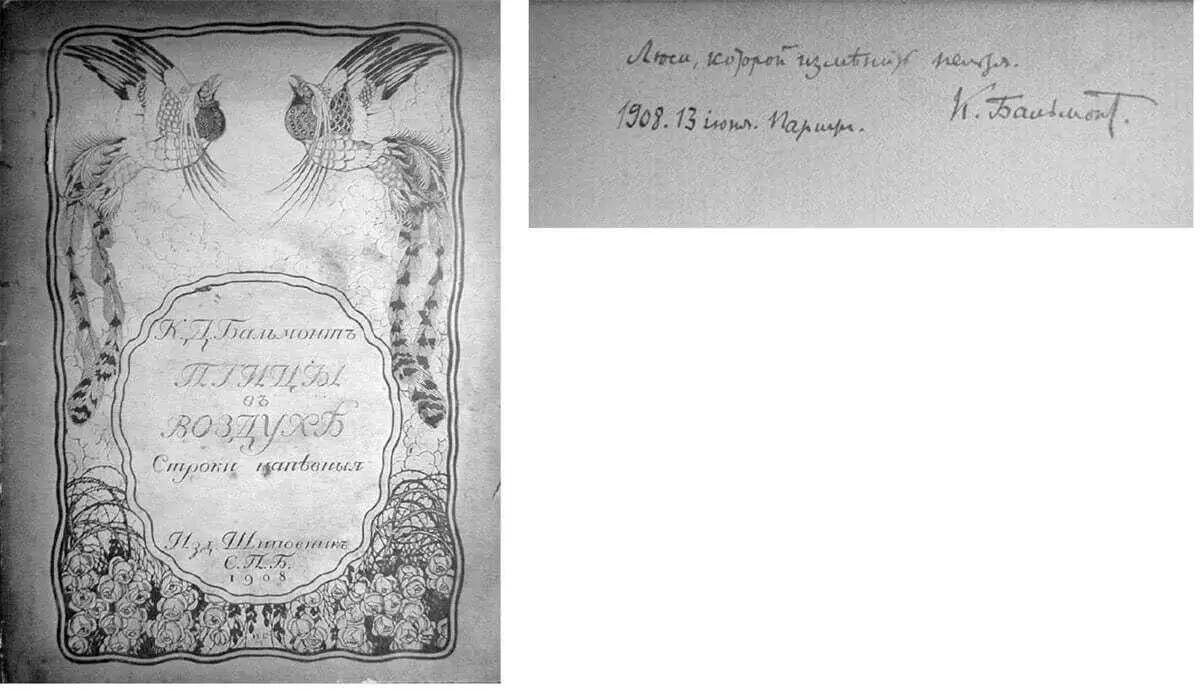 К. Д. Бальмонтъ
ПТИЦЫ
въ
ВОЗДУХѢ
Строки напѣвныя
Изд. Шиповникъ
С.П.Б.
1908
Люси, которой измѣнить нельзя.
1908. 13 іюня. Парижъ.
К. Бальмонт.